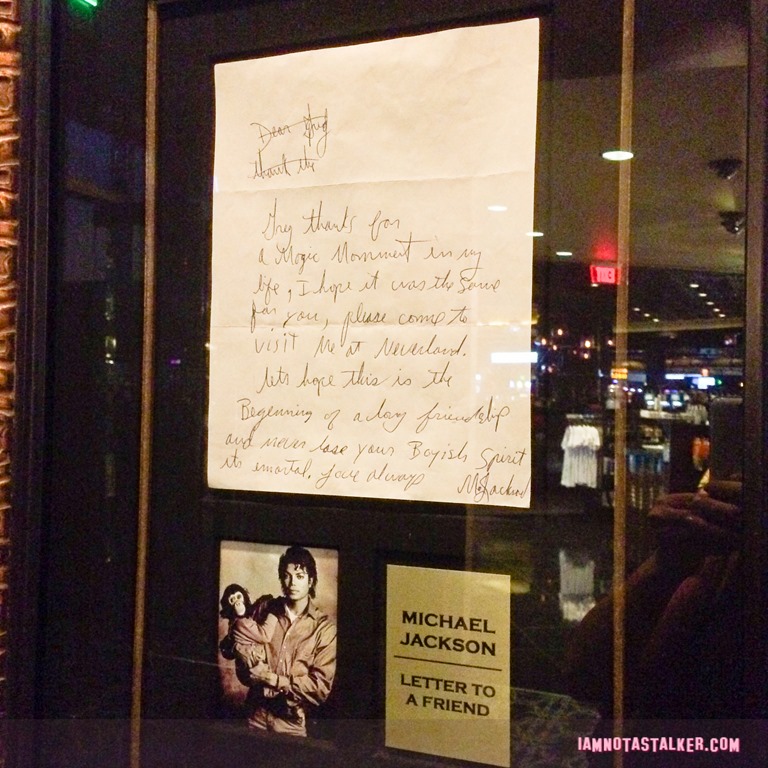 Dear Greg
thank the
Greg thanks for
a Magic Momment in my
life, I hope it was the same
for you, please come to
visit Me at Neverland.
lets hope this is the
Beginning of a long friendship
and never lose your Boyish Spirit
its imortal. Love always MJackson
MICHAEL
JACKSON
LETTER TO
A FRIEND
IAMNOTASTALKER.COM